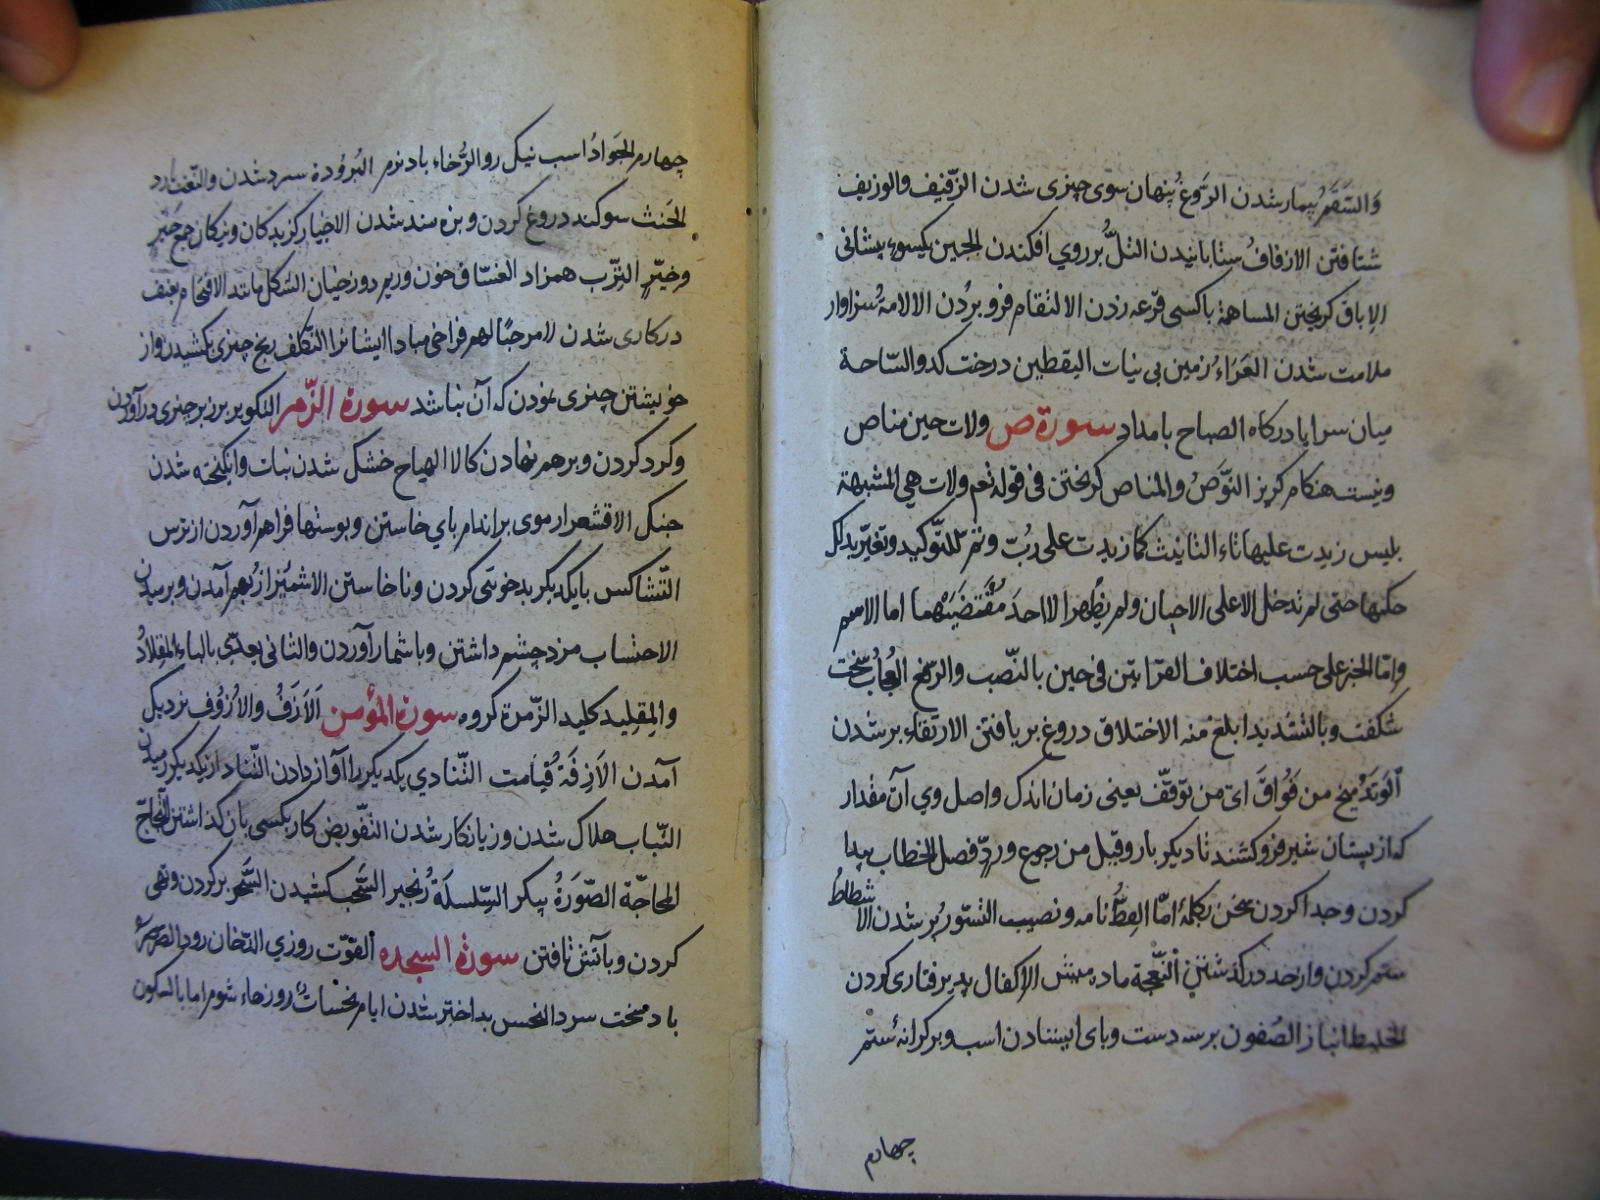 والسَّقَمُ بیمار شدن الرَّوغُ پنهان سوی چیزی شدن الزّفیف والوزیف
شتافتن الازفافُ شتابانیدن التلُّ بر روي افکندن الجبین یکسوء پیشانی
الاباق کریختن المساهمة باکسی قرعه زدن الالتقام فرو بردن الالامةُ سزاوار
ملامت شدن العَرَاءُ زمین بی نبات الیقطین درخت کدو السّاحة
میان سرا یا درکاه الصباح بامداد سورة ص ولات حین مناص
ونیست هنکام کریز النَّوَصُ والمناص کریختن فی قوله تعم ولات هی المشبهة
بلیس زیدت علیها تاء التانیث کما زیدت علی رُبّ وثم للتّوکید وتغیّر بذلک
حکمها حتی لم تدخل الا علی الاحیان ولم یظهر الا احدَ مُقْتَضَیَیْهما اما الاسم
وامّا الخبر علی حسب اختلاف القراءتین فی حین بالنّصب والرّفع العُجابُ سخت
شکفت وبالتشدید ابلغ منه الاختلاق دروغ بر بافتن الارتقاء بر شدن
الوَتَدُ میخ من فَوُاقَ ای من توقّف یعنی زمان اندک واصل وي آن مقدار
که از پستان شیر فرو کشند تا دیکر بار وقیل من رجوع وردّ فصل الخطاب پیدا
کردن وجدا کردن سخن بکلمهٔ امّا القِطُّ نامه ونصیب التسّور بر شدن الاشطاطُ
ستم کردن واز حد درکذشتن النّعجة ماده میش الاکفال پذیرفتاری کردن
الخلیط انباز الصُفون بر سه دست وپای ایستادن اسب وبر کرانهٔ سُمّ
چهارم
چهارم الجَوادُ اسب نیک رو الرُّخاء باد نرم البُرُودة سرد شدن
الحَنث سوکند دروغ کردن وبزه مند شدن الاخیار کزیدکان ونیکان جمع خَیر
وخیّر التِرْب همزاد الغسّاق خون وریم دوزخیان الشکل مانند الاقتحام بعنف
در کاری شدن لا مرحبًا لهم فراخی مبادا ایشانرا التّکلف رنج چیزی کشیدن واز
خویشتن چیزی نمودن که آن نباشد سورة الزّمر التکویر بر بر چیزی در آوردن
وکرد کردن وبر هم نهادن کالا الهیاج خشک شدن نبات وانکیخته شدن
جنک الاقشعرار موی بر اندام بپای خاستن وپوستها فراهم آوردن از ترس
التّشاکس با یکدیکر بدخوئی کردن وناخاستن الاشمیزاز بهم آمدن وبرمیدن
الاحتساب مزد چشم داشتن وباشمار آوردن والثانی یعدّی بالباء المقِلادُ
والمِقلِید کلید الزّمرة کروه سورة المؤمن اَلاَزَفُ والاُزوُف نزدیک
آمدن الاَزِفَةُ قیامت التّنادي یکدیکر را آواز دادن التّنادّ از یکدیکر رمیدن
التّباب هلاک شدن وزیانکار شدن التّفویض کار بکسی باز کذاشتن التّحاجّ
المحاجّة الصّوَرةُ پیکر السِّلسلَةُ زنجیر السَّحب کشیدن السَّجر پر کردن وتهی
کردن وبآتش تافتن سورة السجده القوّت روزي الدّخان رود الصّرصرُ
باد سخت سرد النحس بد اختر شدن ایام نحسات روزهاء شوم اما بالسکون